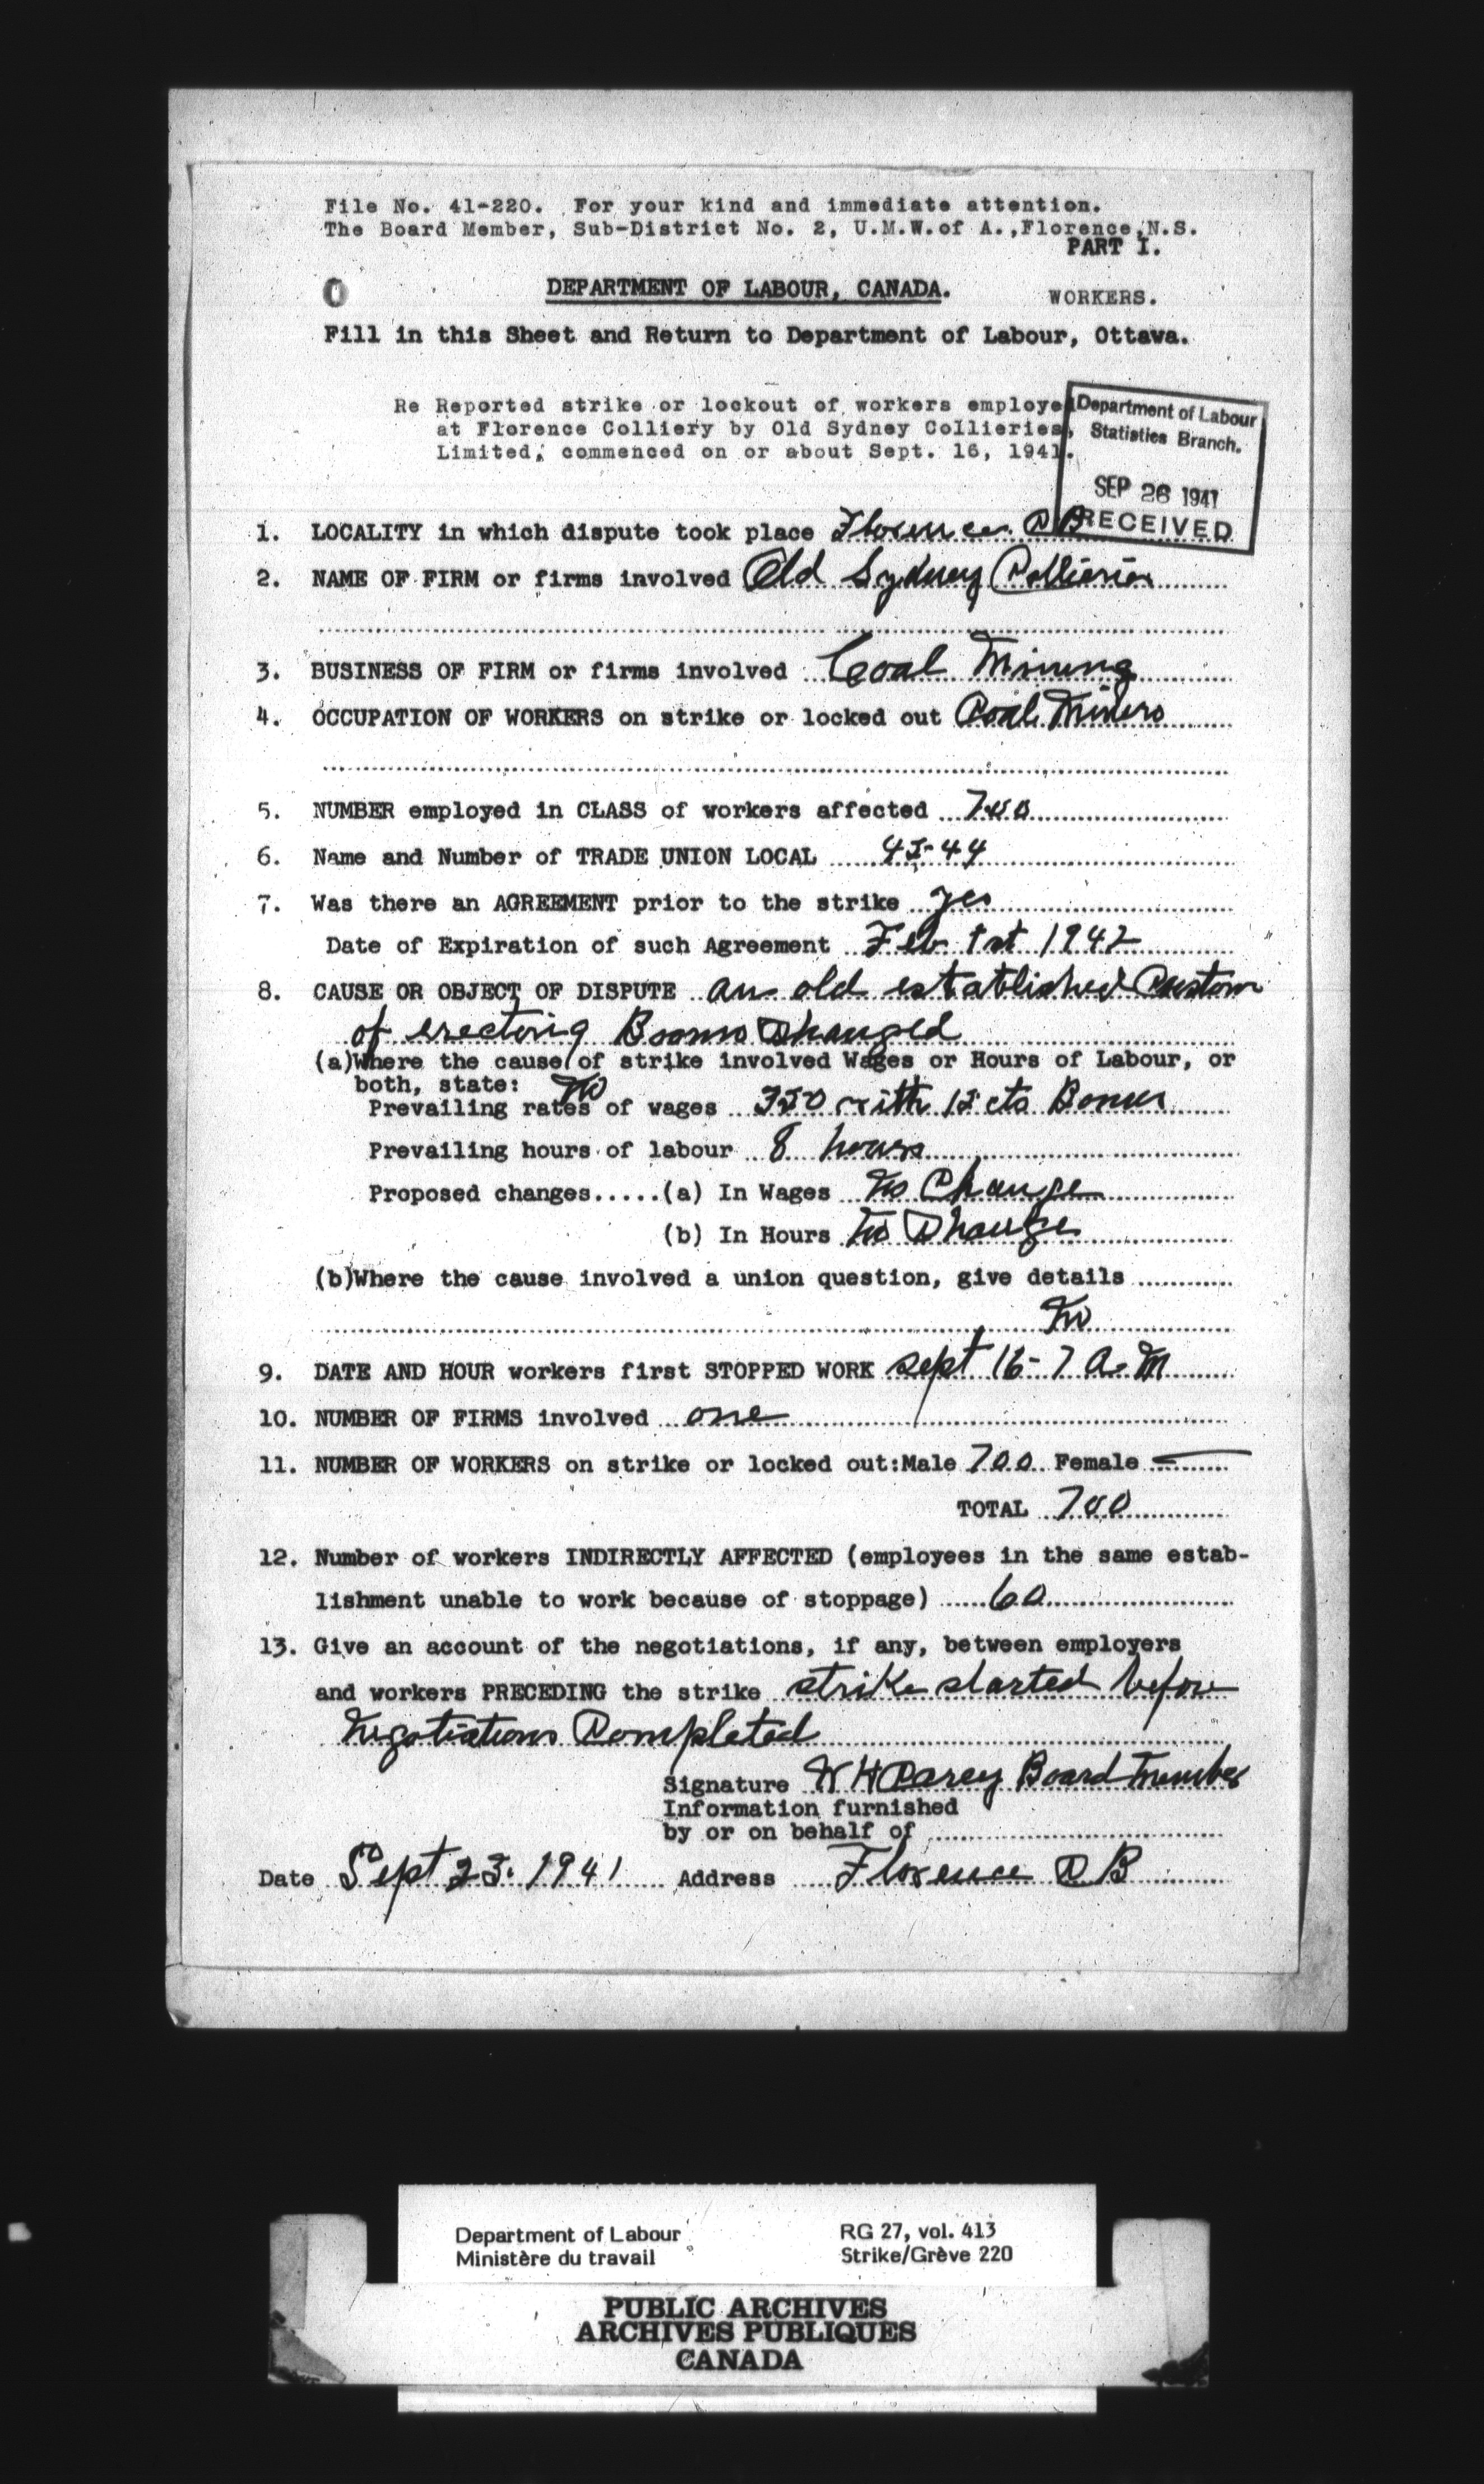 File No. 41-220. For your kind and immediate attention.
The Board Member, Sub-District No. 2, U.M.W.of A.,Florence,N.S.
PART I.
DEPARTMENT OF LABOUR, CANADA.
WORKERS.
Fill in this Sheet and Return to Department of Labour, Ottawa.
Re Reported strike or lockout of workers employed
at Florence Colliery by Old Sydney Collieries,
Limited, commenced on or about Sept. 16, 1941.
Department of Labour
Statistics Branch.
SEP 26 1941
RECEIVED
1. LOCALITY in which dispute took place Florence C B
2. NAME OF FIRM or firms involved Old Sydney Collieries
3. BUSINESS OF FIRM or firms involved Coal Mining
4. OCCUPATION OF WORKERS on strike or locked out Coal Miners
5. NUMBER employed in CLASS of workers affected 700
6. Name and Number of TRADE UNION LOCAL 45-44
7. Was there an AGREEMENT prior to the strike yes
Date of Expiration of such Agreement Feb 1st 1942
8. CAUSE OR OBJECT OF DISPUTE an old established Custom
of erecting Booms Changed
(a)Where the cause of strike involved Wages or Hours of Labour, or
both, state: No
Prevailing rates of wages 350 with 15 cts Bonus
Prevailing hours of labour 8 hours
Proposed changes.....(a) In Wages No Change
(b) In Hours No Change
(b)Where the cause involved a union question, give details
No
9. DATE AND HOUR workers first STOPPED WORK sept 16-7 a.m
10. NUMBER OF FIRMS involved one
11. NUMBER OF WORKERS on strike or locked out:Male 700 Female —
TOTAL 700
12. Number of workers INDIRECTLY AFFECTED (employees in the same estab-
lishment unable to work because of stoppage) 60
13. Give an account of the negotiations, if any, between employers
and workers PRECEDING the strike strike started before
Negotiations Completed
Signature W H Carey Board Member
Information furnished
by or on behalf of
Date Sept 23. 1941 Address Florence C B
Department of Labour RG 27, vol. 413
Ministère du travail Strike/Grève 220
PUBLIC ARCHIVES
ARCHIVES PUBLIQUES
CANADA